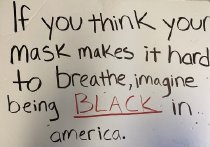 If you think your
mask makes it hard
to breathe, imagine
being BLACK in
america.